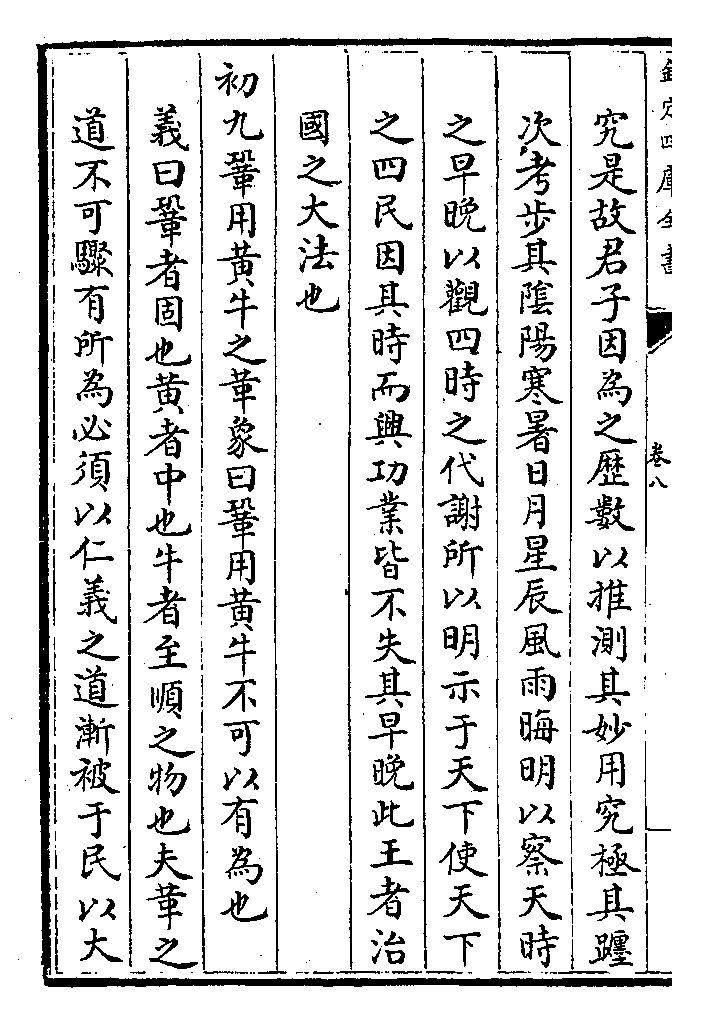 欽定四庫全書
卷八
究是故君子因為之歴數以推測其妙用究極其躔
次考步其隂陽寒暑日月星辰風雨晦明以察天時
之早晩以觀四時之代謝所以明示于天下使天下
之四民因其時而興功業皆不失其早晩此王者治
國之大法也
初九鞏用黄牛之革象曰鞏用黄牛不可以有為也
義曰鞏者固也黄者中也牛者至順之物也夫革之
道不可驟有所為必須以仁義之道漸被于民以大